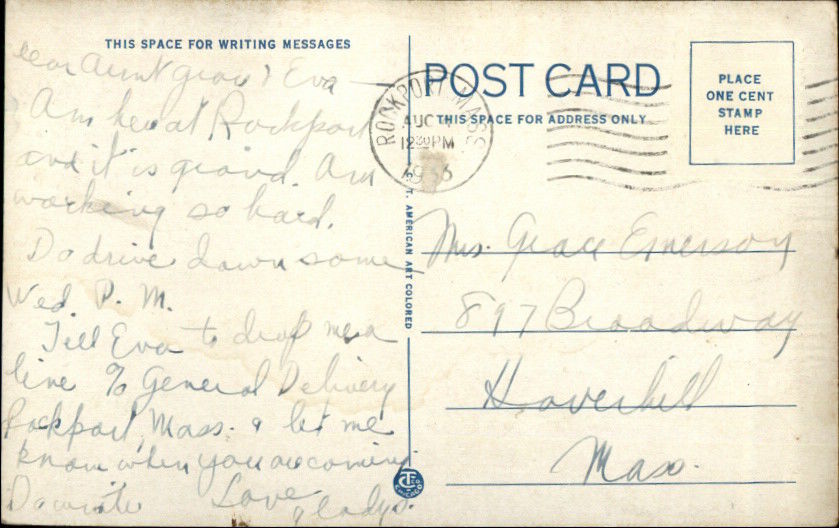 THIS SPACE FOR WRITING MESSAGES
Dear Aunt Grace & Eva
Am here at Rockport
and it is grand. Am
working so hard.
Do drive down some
Wed. P. M.
Tell Eva to drop me a
line % General Delivery
Rockport, Mass. & let me
know when you are coming
Do write Love Gladys.
C. T. AMERICAN ART COLORED
CT CHICAGO
POST CARD
THIS SPACE FOR ADDRESS ONLY
ROCKPORT MASS
AUG
12 30 PM
1936
PLACE
ONE CENT
STAMP
HERE
Mrs. Grace Emerson
897 Broadway
Haverhill
Mass.